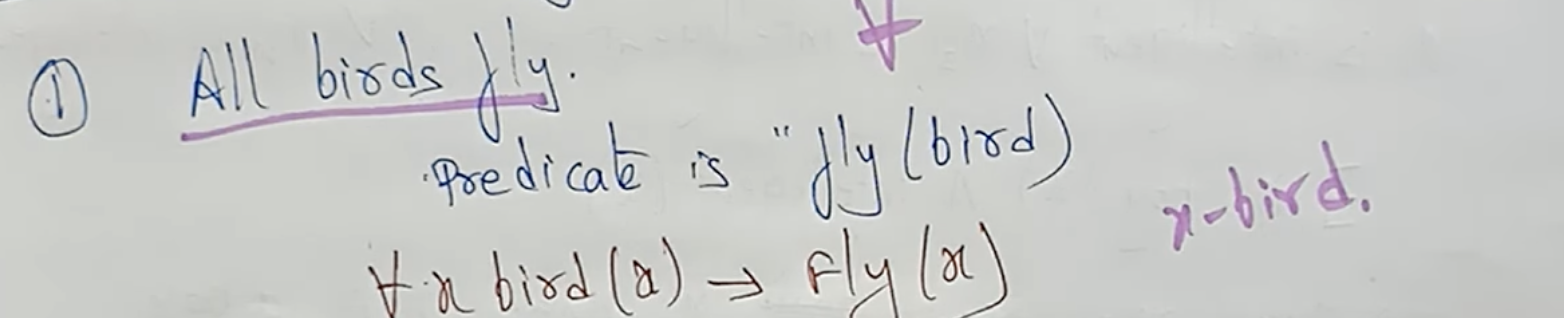 ∀
① All birds fly.
Predicate is "fly (bird)
x-bird.
∀x bird(x) → Fly (x)